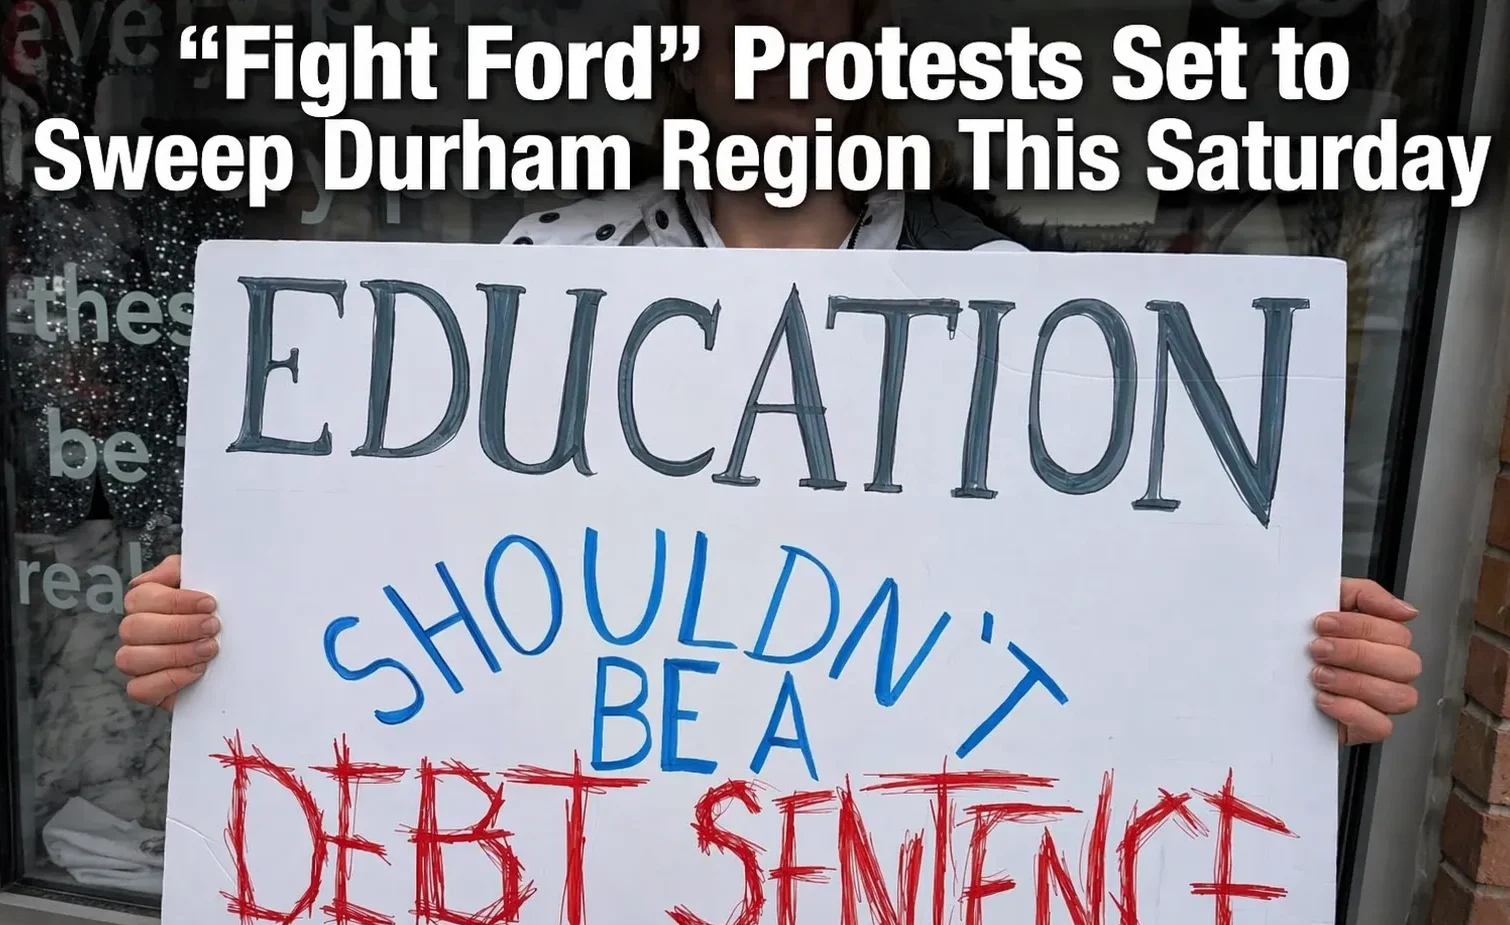 “Fight Ford” Protests Set to
Sweep Durham Region This Saturday
these
be
real
EDUCATION
SHOULDN'T
BE A
DEBT SENTENCE